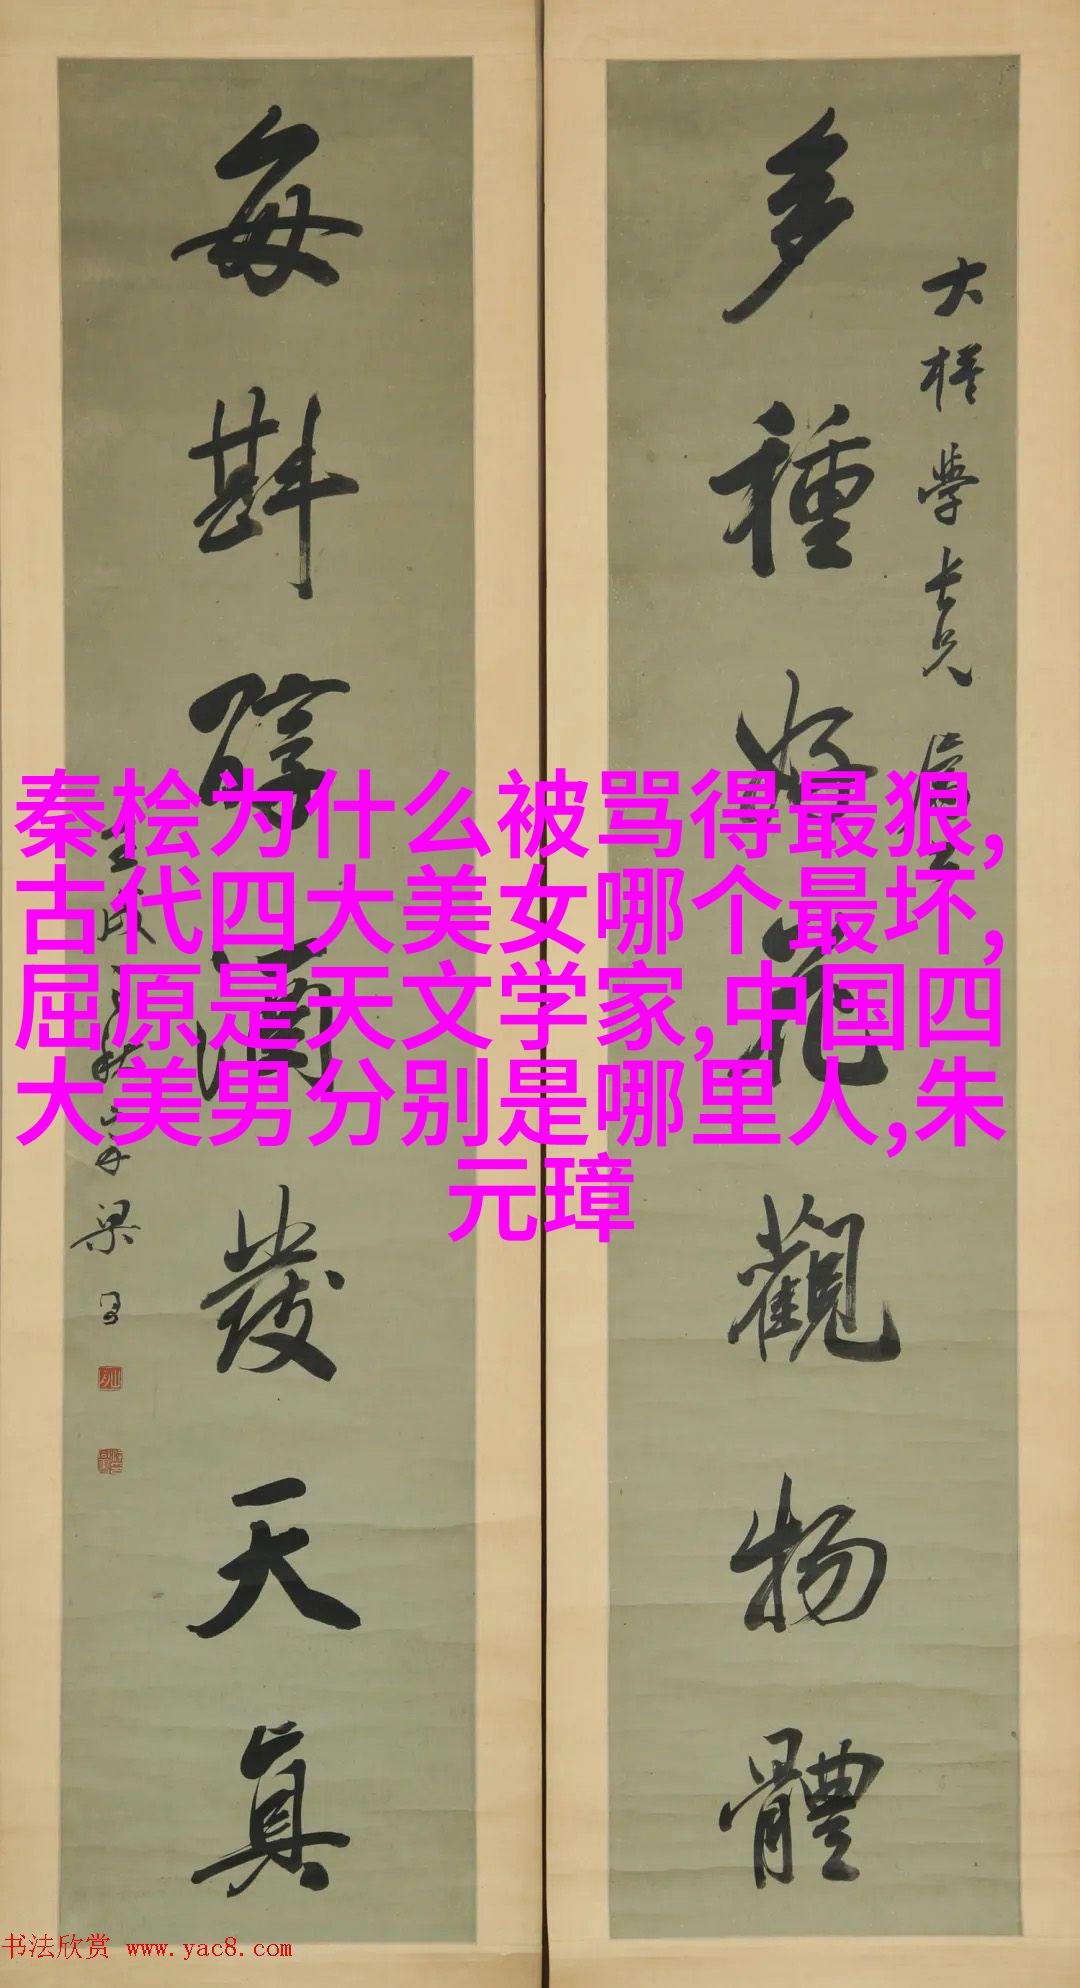 多種好花觀物體
大樣學長兄
每斟醇酒發天真
梁
秦桧为什么被骂得最狠,
古代四大美女哪个最坏,
屈原是天文学家,中国四
大美男分别是哪里人,朱
元璋
书法欣赏 www.yac8.com